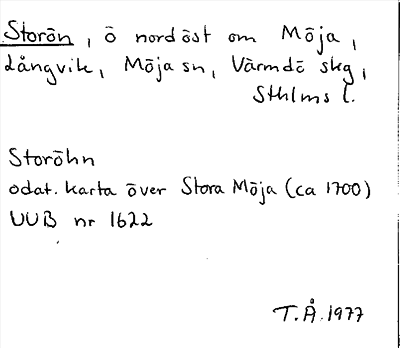 Storön, ö nordöst om Möja,
Långvik, Möja sn, Värmdö skg,
Sthlms l.
Storöhn
odat. karta över Stora Möja (ca 1700)
UUB nr 1622
T.Å. 1977